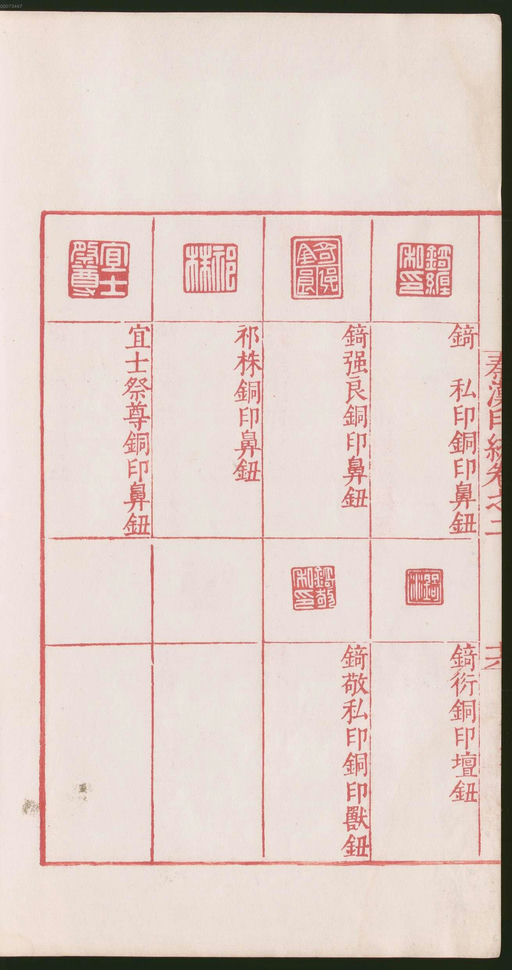 秦漢印統卷之二
十六
錡 私印銅印鼻鈕
錡强良銅印鼻鈕
祁株銅印鼻鈕
宜士祭尊銅印鼻鈕
錡衍銅印壇鈕
錡敬私印銅印獸鈕
00073447